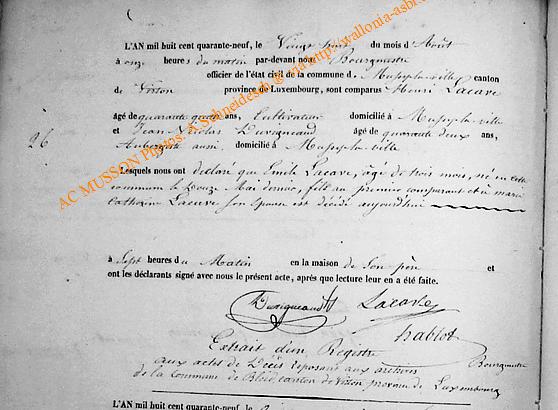 L'AN mil huit cent quarante-neuf, le Vingt du mois d'Août
à onze heures du matin par-devant nous Bourgmestre
officier de l'état civil de la commune d. Mussy-la-ville canton
de Virton province de Luxembourg, sont comparus Henri Lacave
âgé de quarante quatre ans, Cultivateur domicilié à Mussy-la-ville
26
et Jean Nicolas Duvigneaud âgé de quarante deux ans,
Aubergiste aussi domicilié à Mussy-la-ville
Lesquels nous ont déclaré que Emile Lacave, âgé de trois mois, né en cette
commune le Douze Mai dernier, fils du premier comparant et de marie
Catherine Lacave son épouse est décédé aujourd'hui
à Sept heures du Matin en la maison de son père et
ont les déclarants signé avec nous le présent acte, après que lecture leur en a été faite.
Duvigneaud Lacave
hablot
Bourgmestre
Extrait d'un Registre
aux actes de Décès reposant aux archives
de la Commune de Bleid, canton de Virton province de Luxembourg
L'AN mil huit cent quarante-neuf, le
AC MUSSON Photos A.Schneidesch @sria http://wallonia-asbl